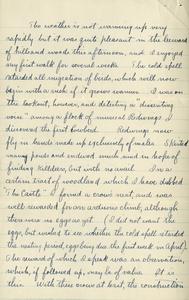 The weather is not warming up very
rapidly but it was quite pleasant in the leeward
of hills and woods this afternoon, and I enjoyed
my first walk for several weeks. The cold spell
retarded all migration of birds, which will now
begin with a rush if it grows warmer. I was on
the lookout, however, and detecting a "dissenting
voice" among a flock of musical Redwings I
discovered the first Cowbird. Redwings now
fly in bands made up exclusively of males. I skirted
many ponds and undried mud in hope of
finding Killdeer, but with no avail. In a
certain tract of woodland which I have dubbed
"The Castle" I found a crow's nest, and was
well rewarded for an arduous climb, although
there were no eggs as yet. (I did not want the
eggs, but wished to see whether the cold spell retarded
the nesting period, eggs being due the first week in April.)
The reward of which I speak was an observation,
which, if followed up, may be of value. It is
this: With this crow at least, the construction